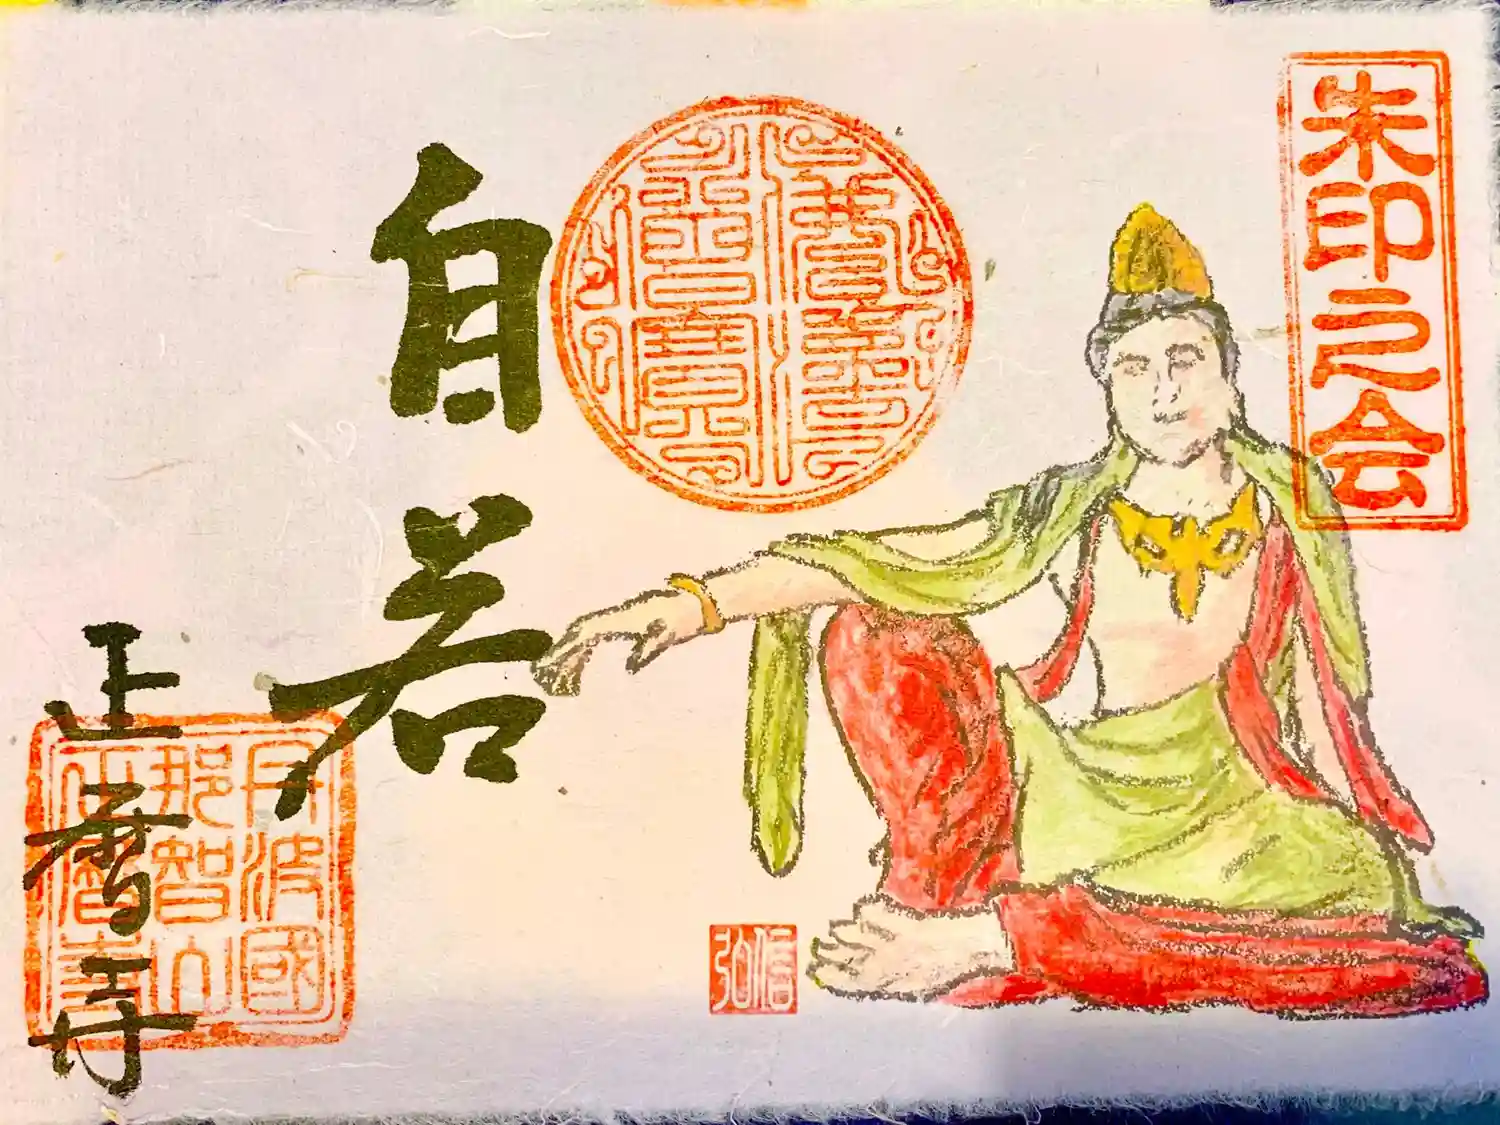 朱印之会
自若
正暦寺
丹波國
那智山
正暦寺
信弘